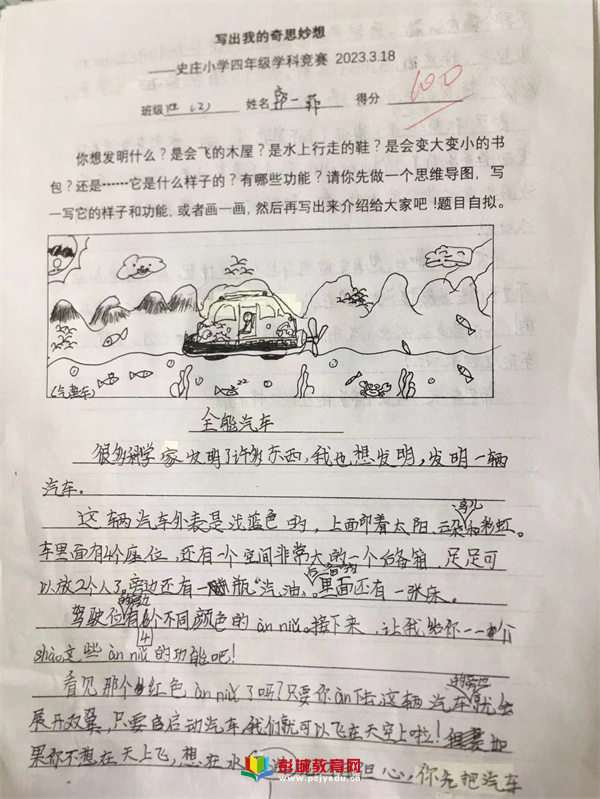 写出我的奇思妙想
——史庄小学四年级学科竞赛 2023.3.18
班级 四（2） 姓名 一菲 得分 100
你想发明什么？是会飞的木屋？是水上行走的鞋？是会变大变小的书
包？还是……它是什么样子的？有哪些功能？请你先做一个思维导图，写
一写它的样子和功能，或者画一画，然后再写出来介绍给大家吧！题目自拟。
全能汽车
很多科学家发明了许多东西，我也想发明，发明一辆
汽车。
这辆汽车外表是浅蓝色的，上面印着太阳、云朵和彩虹。
车里面有4个座位，还有一个空间非常大的一个后备箱，足足可
以放2个人了。旁边还有一瓶“汽油”。里面还有一张床。
驾驶位有个不同颜色的àn niǔ。接下来，让我给你一一介
4
shào这些àn niǔ的功能吧！
看见那个红色àn niǔ了吗？只要你àn下去这辆汽车就会
展开双翼，只要启动汽车我们就可以飞在天空上啦！如
果你不想在天上飞，想在水 担心，你先把汽车
彭城教育网
www.pcjyedu.com